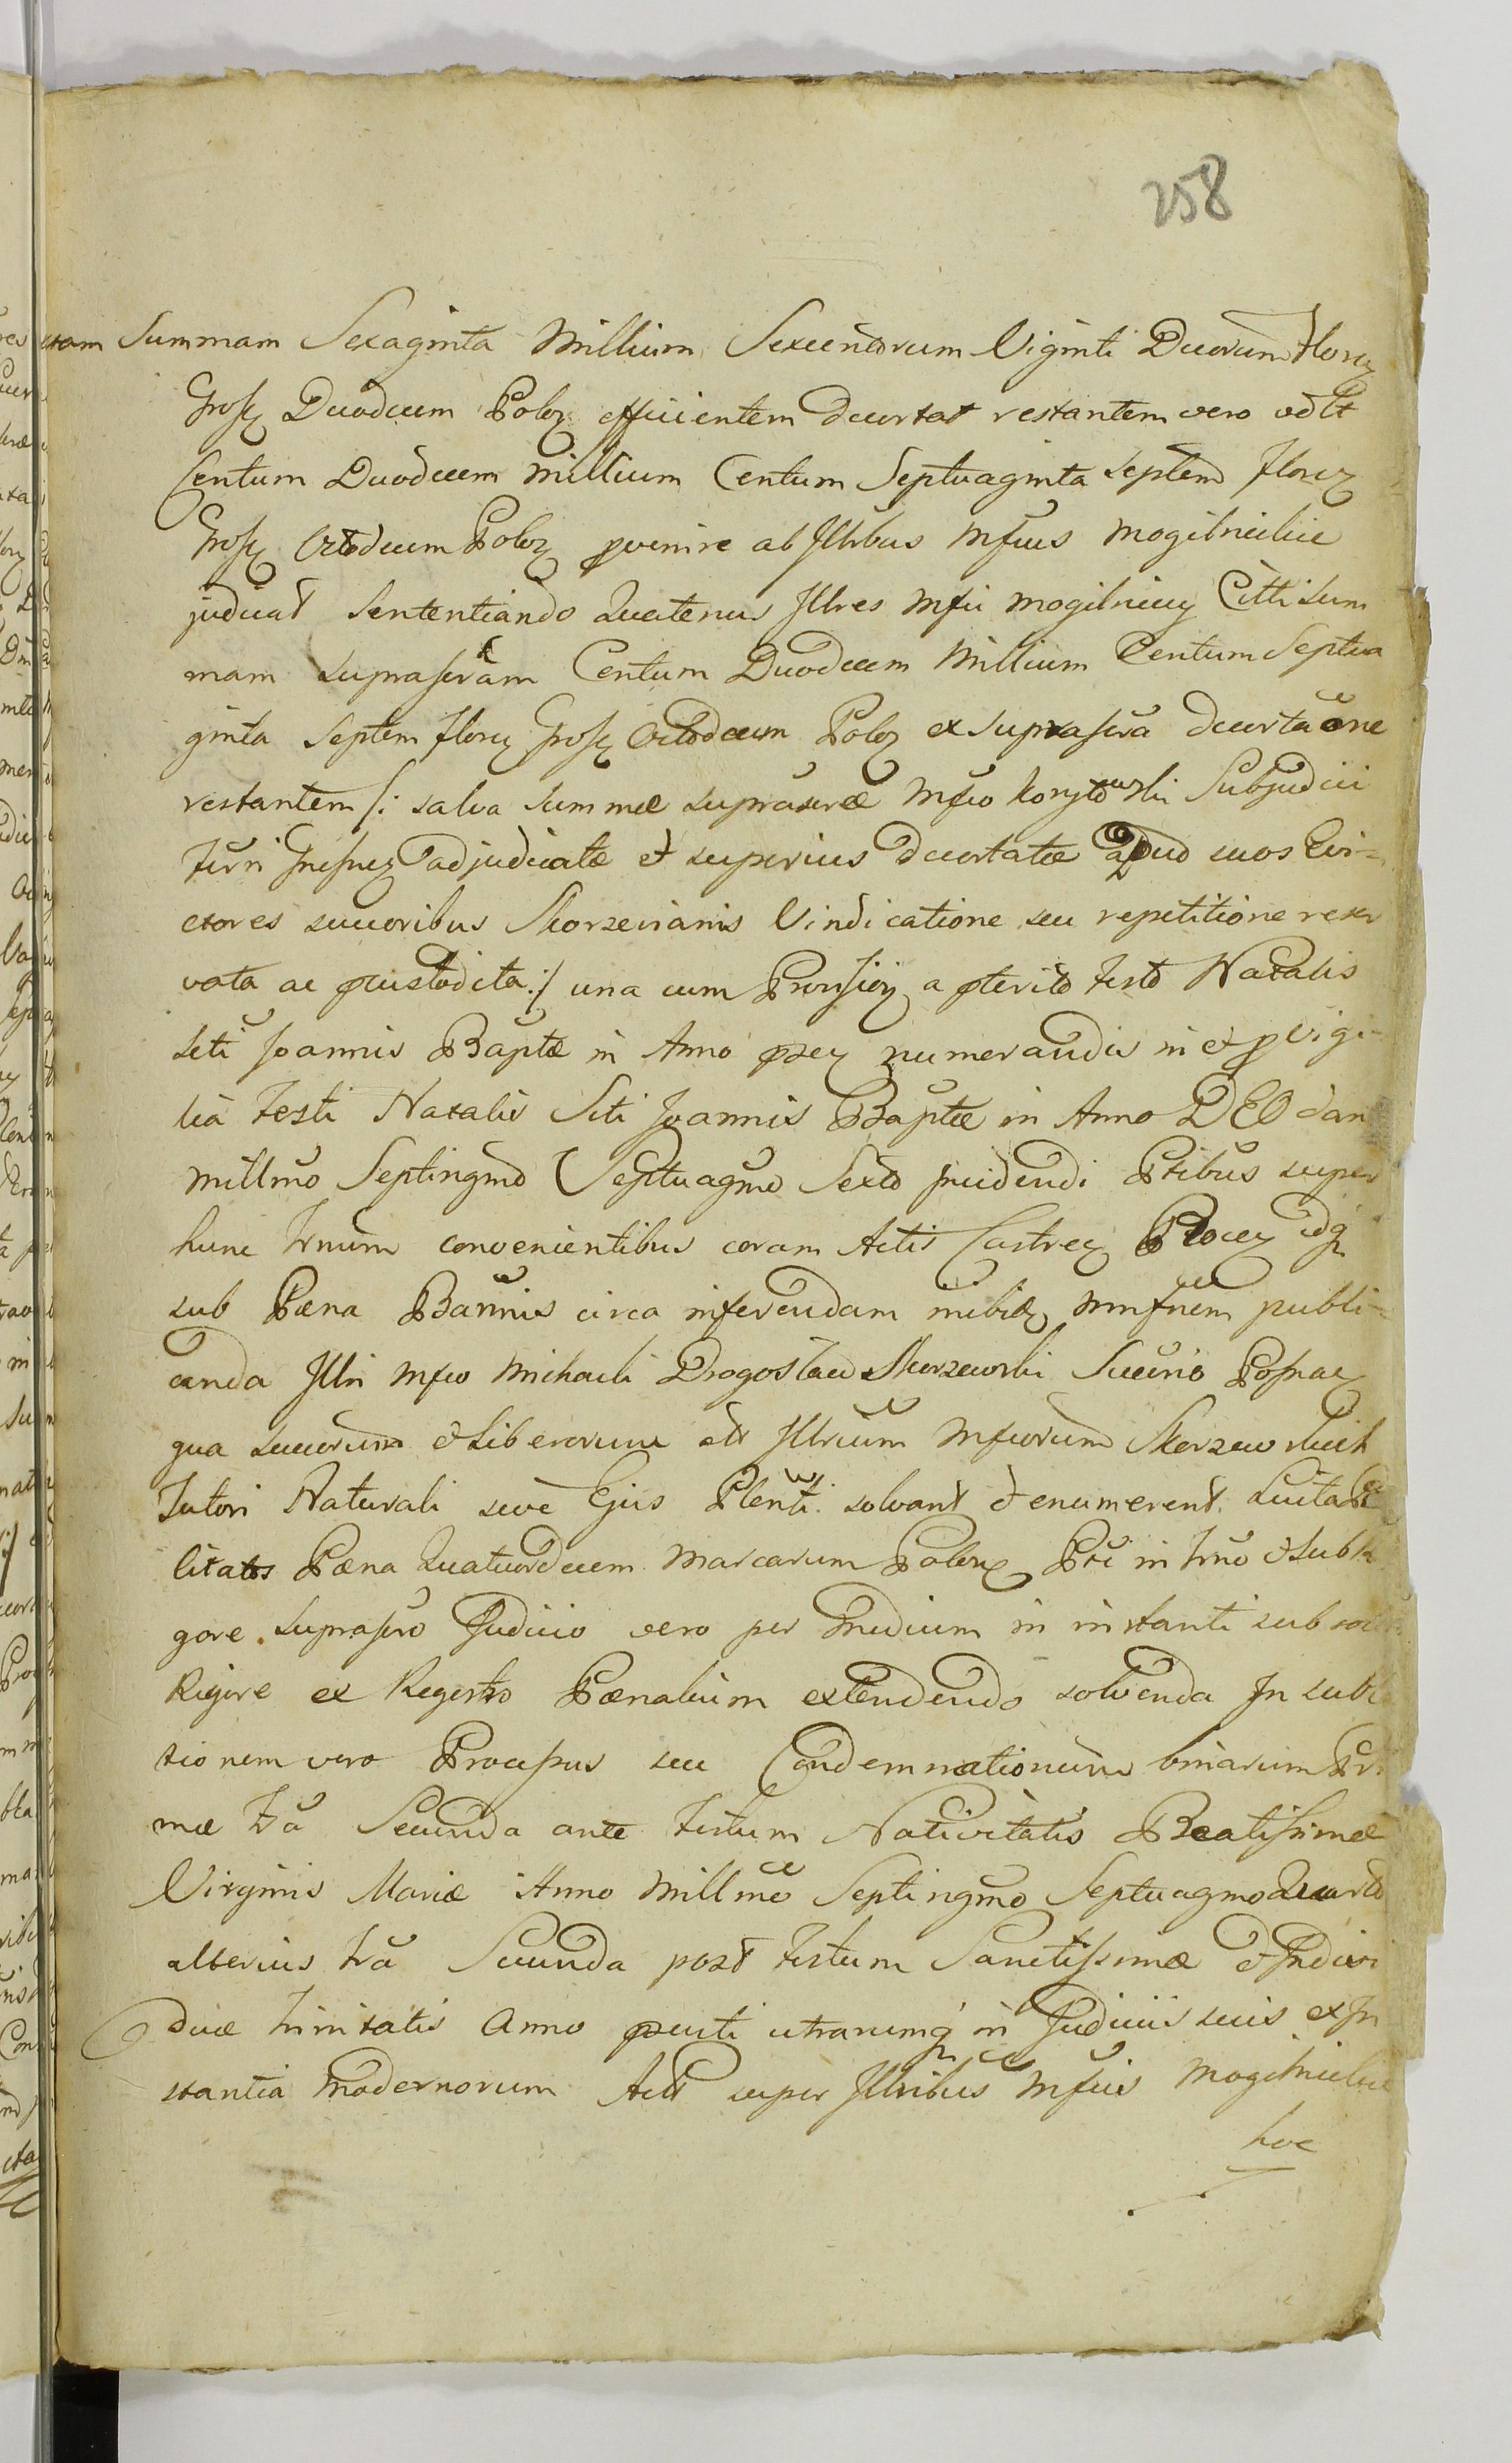 258
Summam Sexaginta Millium Sexcentorum Viginti Duorum Floren
Gross Duodecem Polon efficientem decurtat restantem vero vdlt
Centum Duodecem Millium Centum Septuaginta Septem Floren
Gross Octodecem Polon pvenire ab Illribus Mfcis Mogilnickie
judicat Sententiando Quatenus Illres Mfci Mogilniccy Citti Sum
mam suprascram Centum Duodecem Millium Centum Septua
ginta Septem Floren Gross Octodecem Polon ex suprascra decurtaone
restantem /: salva Summæ suprascræ Mfco Korytowski Subjudici
Terri Gnesnen adjudicatæ et superius decurtatæ apud suos Evi=
ctores succoribus Skorzewianis Vindicatione seu repetitione reser
vata ac pcustodita :/ una cum Provision a pterito Festo Natalis
Scti Joannis Baptæ in Anno pzen numerandis in et p Vigi=
lia Festi Natalis Scti Joannis Baptæ in Anno DEO dan
Millmo Septingmo Septuagmo Sexto incidendi Ptibus super
hunc Trnum convenientibus coram Actis Castren idq
sub Pœna Bannis circa inferendam mnfnem publi=
canda Illri Mfco Michaeli Drogoslaw Skorzewski Succrio Posnan
qua succorum et Liberorum olt Illrium Mfcorum Skorzewskich
Tutori Naturali sive Ejus Plenti solvant et enumerent sub
litatis Pœna Quatuordecem Marcarum Polon Pti in Trno et sub Ri
gore suprascro Judicio vero per Medium in instanti sub
Rigore ex Regestro Pœnalium extendendo solvenda In subl
tionem vero Processus seu Condemnationum binarum Pri
mæ Fra Secunda ante Festum Nativitatis Beatissimæ
Virginis Mariæ Anno Millmo Septingmo Septuagmo Quarto
alterius Fra Secunda post Festum Sanctissimæ et Indivi
duæ Trinitatis Anno pnti utrarumq in Judiciis suis ex In
stantia Modernorum Act super Illribus Mfcis Mogilnickie
hoc